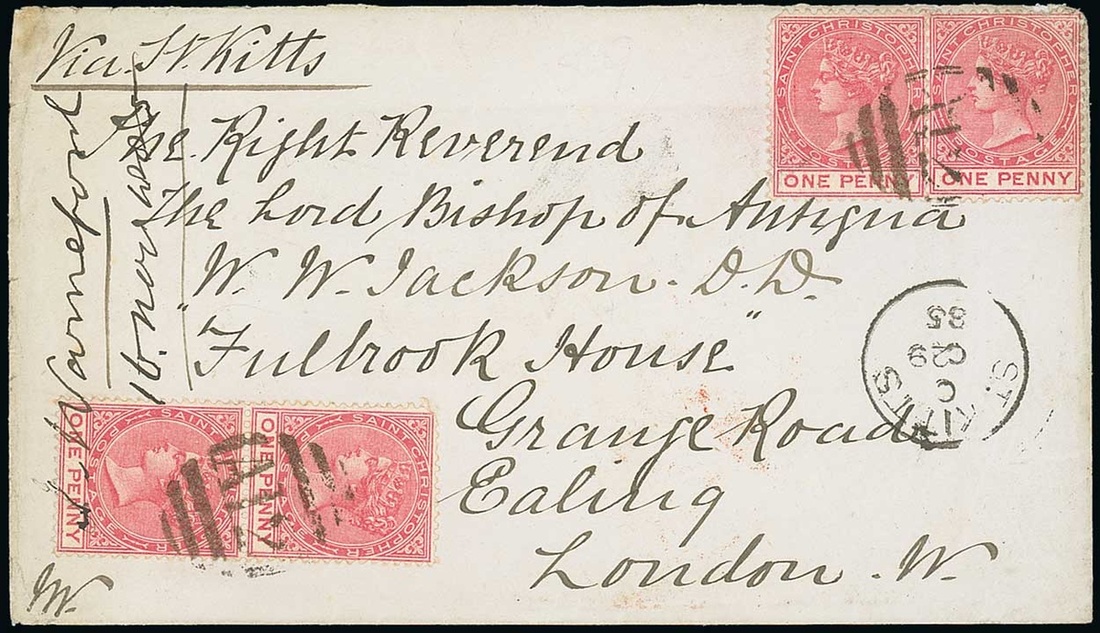 Via. St. Kitts
The. Right Reverend
The Lord Bishop of Antigua
W. W. Jackson. D.D.
"Fulbrook House"
Grange Road
Ealing
London. W.
SAINT CHRISTOPHER
POSTAGE
ONE PENNY
SAINT CHRISTOPHER
POSTAGE
ONE PENNY
A12
ST. KITTS
C
OC 9
85
SAINT CHRISTOPHER
POSTAGE
ONE PENNY
SAINT CHRISTOPHER
POSTAGE
ONE PENNY
A12